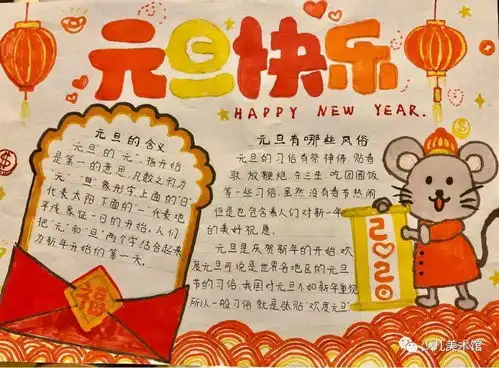 元旦快乐
HAPPY NEW YEAR.
元旦的含义
元旦的“元”,指开始
是第一的意思,凡数之初为
元”,旦”象形字,上面的“日”
代表太阳,下面的一代表地
平线,象征一日的开始,人们
把“元”和“旦”两个字结合起来
为新年开始的第一天。
福
元旦有哪些风俗
元旦的习俗有祭神佛、贴春
联、放鞭炮、杀三生、吃团圆饭
等一些习俗,虽然没有春节热闹
但是也包含着人们对新一年
的美好祝愿。
元旦是庆贺新年的开始,欢
度元旦可说是世界各地区的元旦
节的习俗,我国对元旦不如新年重视
所以一般习俗就是张贴“欢度元旦”
2020
少儿美术馆